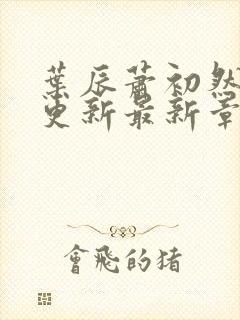 葉辰蕭初然
更新最新章
會飛的猪